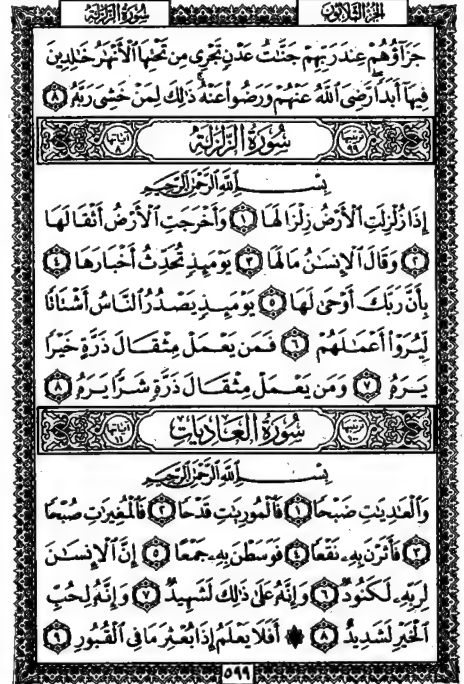 الجزء الثلاثون
سورة الزلزلة
جَزَآؤُهُمْ عِندَ رَبِّهِمْ جَنَّٰتُ عَدْنٍ تَجْرِى مِن تَحْتِهَا ٱلْأَنْهَٰرُ خَٰلِدِينَ
فِيهَآ أَبَدًا رَّضِىَ ٱللَّهُ عَنْهُمْ وَرَضُوا۟ عَنْهُ ذَٰلِكَ لِمَنْ خَشِىَ رَبَّهُۥ ٨
ترتيبها ٩٩
سُورَةُ الزَّلْزَلَة
آياتها ٨
بِسْمِ ٱللَّهِ ٱلرَّحْمَٰنِ ٱلرَّحِيمِ
إِذَا زُلْزِلَتِ ٱلْأَرْضُ زِلْزَالَهَا ١ وَأَخْرَجَتِ ٱلْأَرْضُ أَثْقَالَهَا
٢ وَقَالَ ٱلْإِنسَٰنُ مَا لَهَا ٣ يَوْمَئِذٍ تُحَدِّثُ أَخْبَارَهَا ٤
بِأَنَّ رَبَّكَ أَوْحَىٰ لَهَا ٥ يَوْمَئِذٍ يَصْدُرُ ٱلنَّاسُ أَشْتَاتًا
لِّيُرَوْا۟ أَعْمَٰلَهُمْ ٦ فَمَن يَعْمَلْ مِثْقَالَ ذَرَّةٍ خَيْرًا
يَرَهُۥ ٧ وَمَن يَعْمَلْ مِثْقَالَ ذَرَّةٍ شَرًّا يَرَهُۥ ٨
ترتيبها ١٠٠
سُورَةُ الْعَادِيَات
آياتها ١١
بِسْمِ ٱللَّهِ ٱلرَّحْمَٰنِ ٱلرَّحِيمِ
وَٱلْعَٰدِيَٰتِ ضَبْحًا ١ فَٱلْمُورِيَٰتِ قَدْحًا ٢ فَٱلْمُغِيرَٰتِ صُبْحًا
٣ فَأَثَرْنَ بِهِۦ نَقْعًا ٤ فَوَسَطْنَ بِهِۦ جَمْعًا ٥ إِنَّ ٱلْإِنسَٰنَ
لِرَبِّهِۦ لَكَنُودٌ ٦ وَإِنَّهُۥ عَلَىٰ ذَٰلِكَ لَشَهِيدٌ ٧ وَإِنَّهُۥ لِحُبِّ
ٱلْخَيْرِ لَشَدِيدٌ ٨ ۞ أَفَلَا يَعْلَمُ إِذَا بُعْثِرَ مَا فِى ٱلْقُبُورِ ٩
٥٩٩